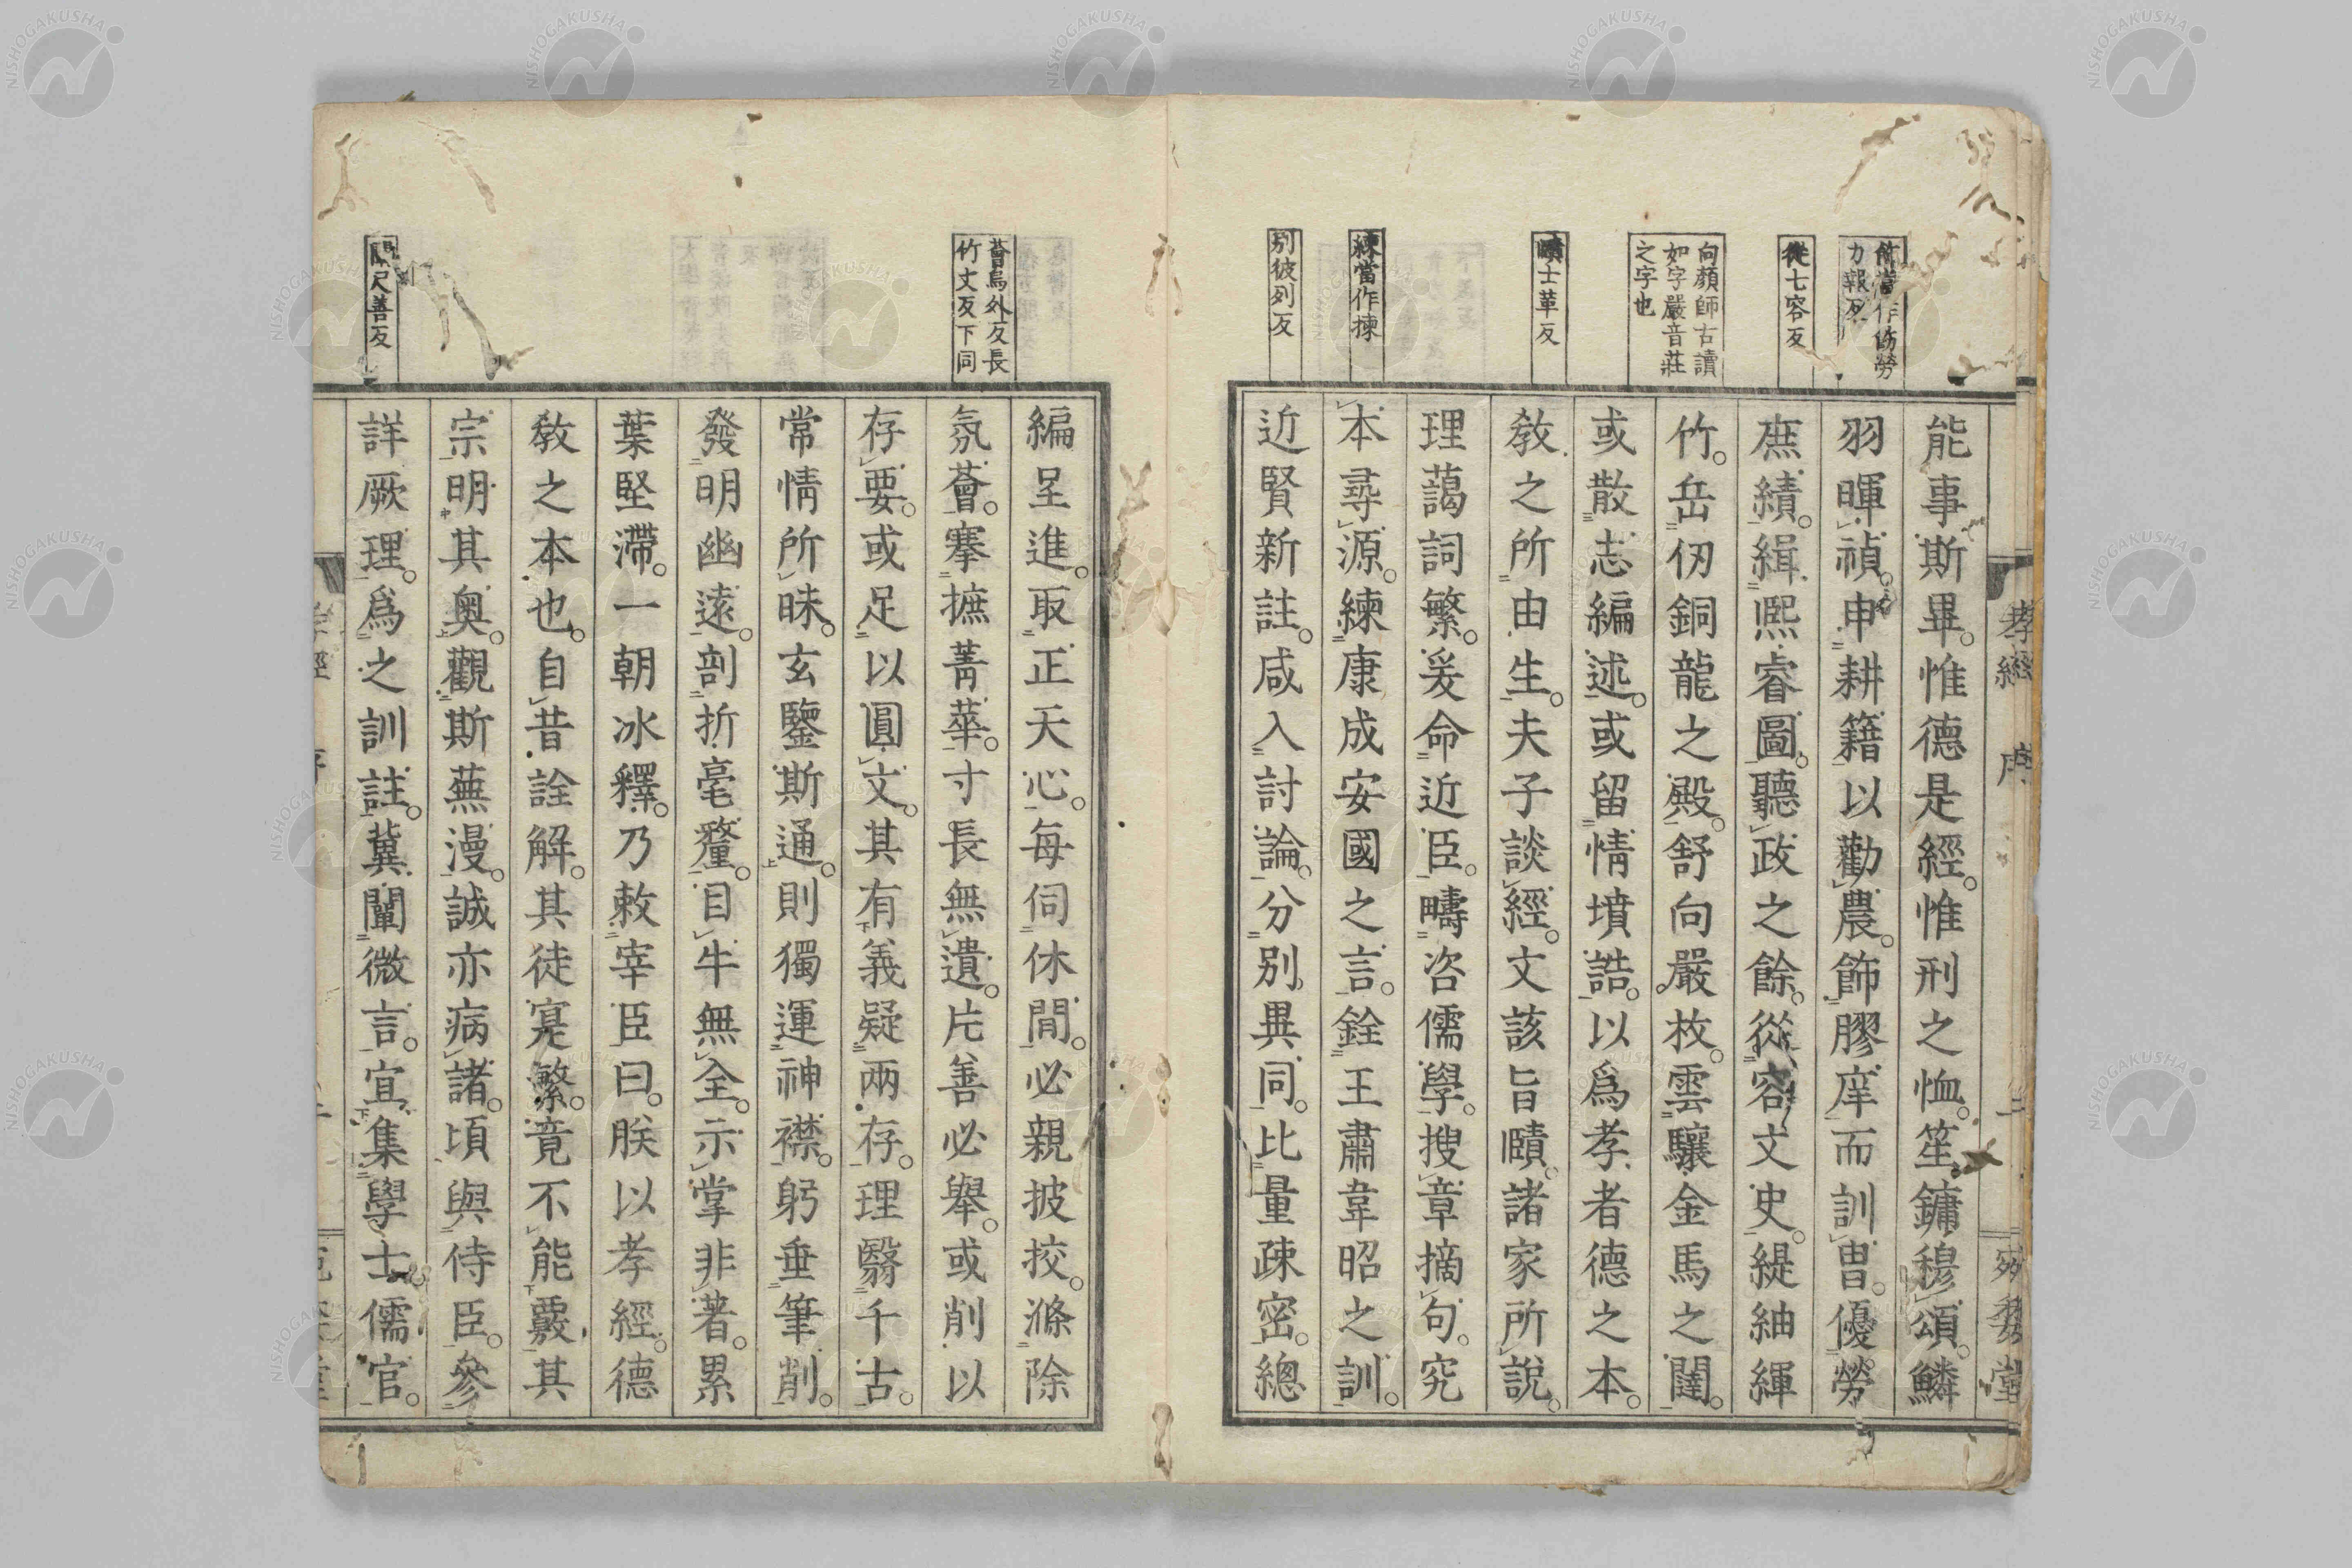 飾當作飭勞
力報反
從七容反
向顏師古讀
如字嚴音莊
之字也
賾士革反
練當作揀
別彼列反
能事斯畢惟德是經惟刑之恤笙鏞穆頌鱗
羽暉禎申耕籍以勸農飾膠庠而訓冑優勞
庶績緝熙睿圖聽政之餘從容文史緹紬緷
竹岳仞銅龍之殿舒向嚴枚雲驤金馬之闥
或散志編述或留情墳誥以爲孝者德之本
敎之所由生夫子談經文該旨賾諸家所說
理蔼詞繁爰命近臣疇咨儒學搜章摘句究
本尋源練康成安國之言銓王肅韋昭之訓
近賢新註咸入討論分別異同比量疎密總
孝經
序
薈烏外反長
竹丈反下同
闡尺善反
編呈進取正天心每伺休閒必親披挍滌除
氛薈搴摭菁華寸長無遺片善必舉或削以
存要或足以圓文其有義疑兩存理翳千古
常情所昧玄鑒斯通則獨運神襟躬垂筆削
發明幽遠剖折毫釐目牛無全示掌非著累
葉堅滯一朝冰釋乃敕宰臣曰朕以孝經德
敎之本也自昔詮解其徒寔繁竟不能覈其
宗明其奧觀斯蕪漫誠亦病諸頃與侍臣參
詳厥理爲之訓註冀闡微言宜集學士儒官
NISHOGAKUSHA